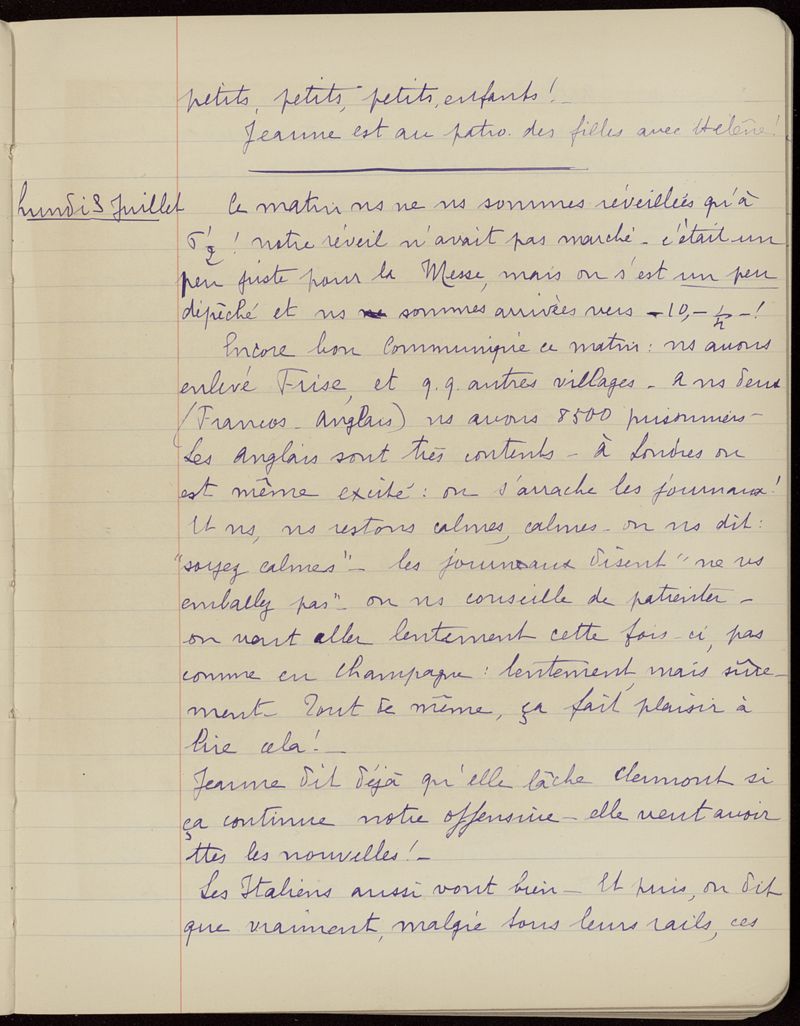 petits, petits, petits, enfants! _
Jeanne est au patro. des filles avec Helène!
Lundi 3 Juillet Ce matin ns ne ns sommes réveillées qu'à
6 1/2 ! notre réveil n'avait pas marché _ c'était un
peu juste pour la Messe, mais on s'est un peu
dépêché et ns sommes arrivées vers -10,- 1/2 -!
Encore bon Communiqué ce matin : ns avons
enlevé Frise, et q.q. autres villages _ a ns deux
(Francos-Anglais) ns avons 8500 prisonniers _
Les Anglais sont très contents _ à Londres on
est même excité : on s'arrache les journaux!
Et ns, ns restons calmes, calmes _ on ns dit :
"soyez calmes" _ les journaux disent "ne vs
emballez pas" _ on ns conseille de patienter _
on veut aller lentement cette fois-ci, pas
comme en Champagne : lentement, mais sûre-
ment _ Tout de même, ça fait plaisir à
lire cela! _
Jeanne dit déjà qu'elle lâche Clermont si
ça continue notre offensive _ elle veut avoir
ttes les nouvelles! _
Les Italiens aussi vont bien _ Et puis, on dit
que vraiment, malgré tous leurs rails, ces